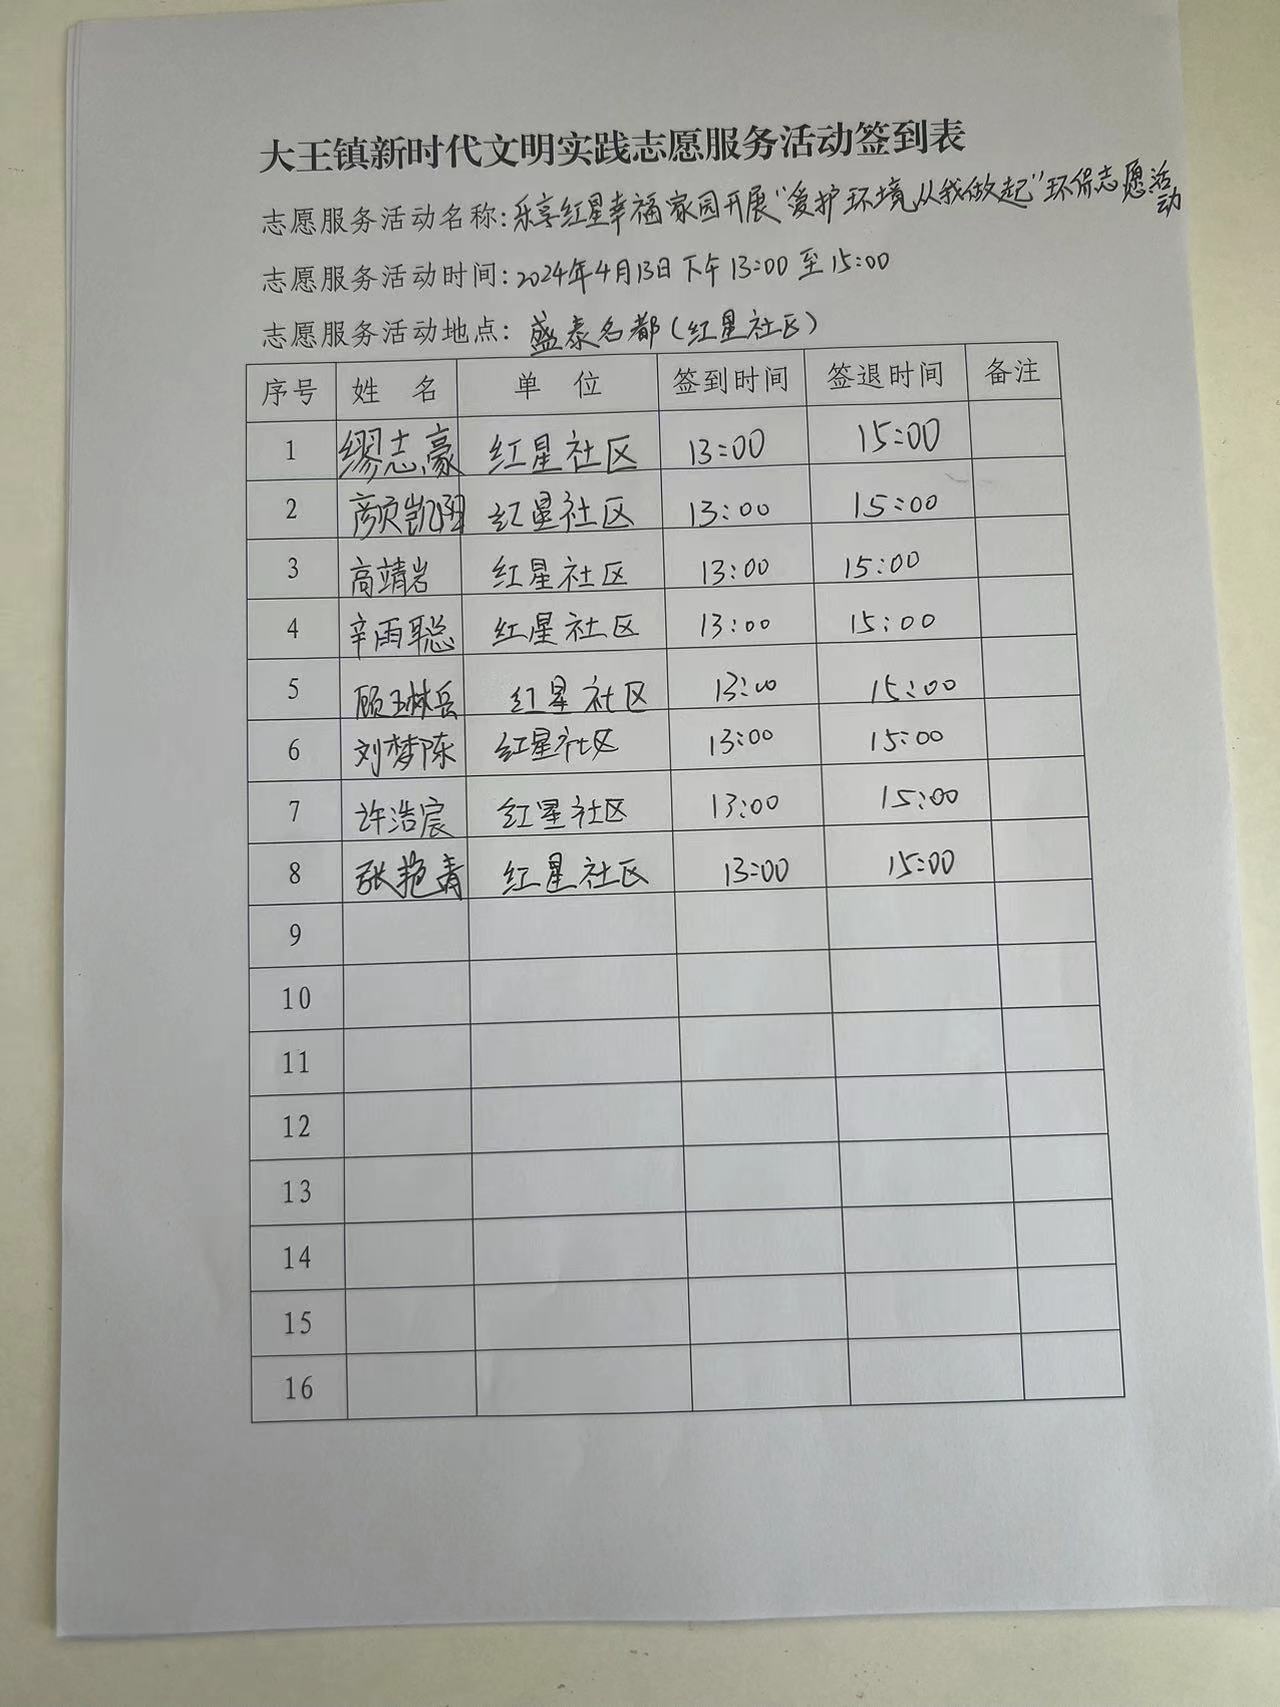 大王镇新时代文明实践志愿服务活动签到表
志愿服务活动名称:乐享红星幸福家园开展“爱护环境,从我做起”环保志愿活动
志愿服务活动时间:2024年4月13日下午13:00至15:00
志愿服务活动地点:盛泰名都(红星社区)
序号 姓名 单位 签到时间 签退时间 备注
1 缪志豪 红星社区 13:00 15:00
2 颜凯翔 红星社区 13:00 15:00
3 高靖岩 红星社区 13:00 15:00
4 辛雨聪 红星社区 13:00 15:00
5 顾玉林岳 红星社区 13:00 15:00
6 刘梦陈 红星社区 13:00 15:00
7 许浩宸 红星社区 13:00 15:00
8 张艳青 红星社区 13:00 15:00
9
10
11
12
13
14
15
16